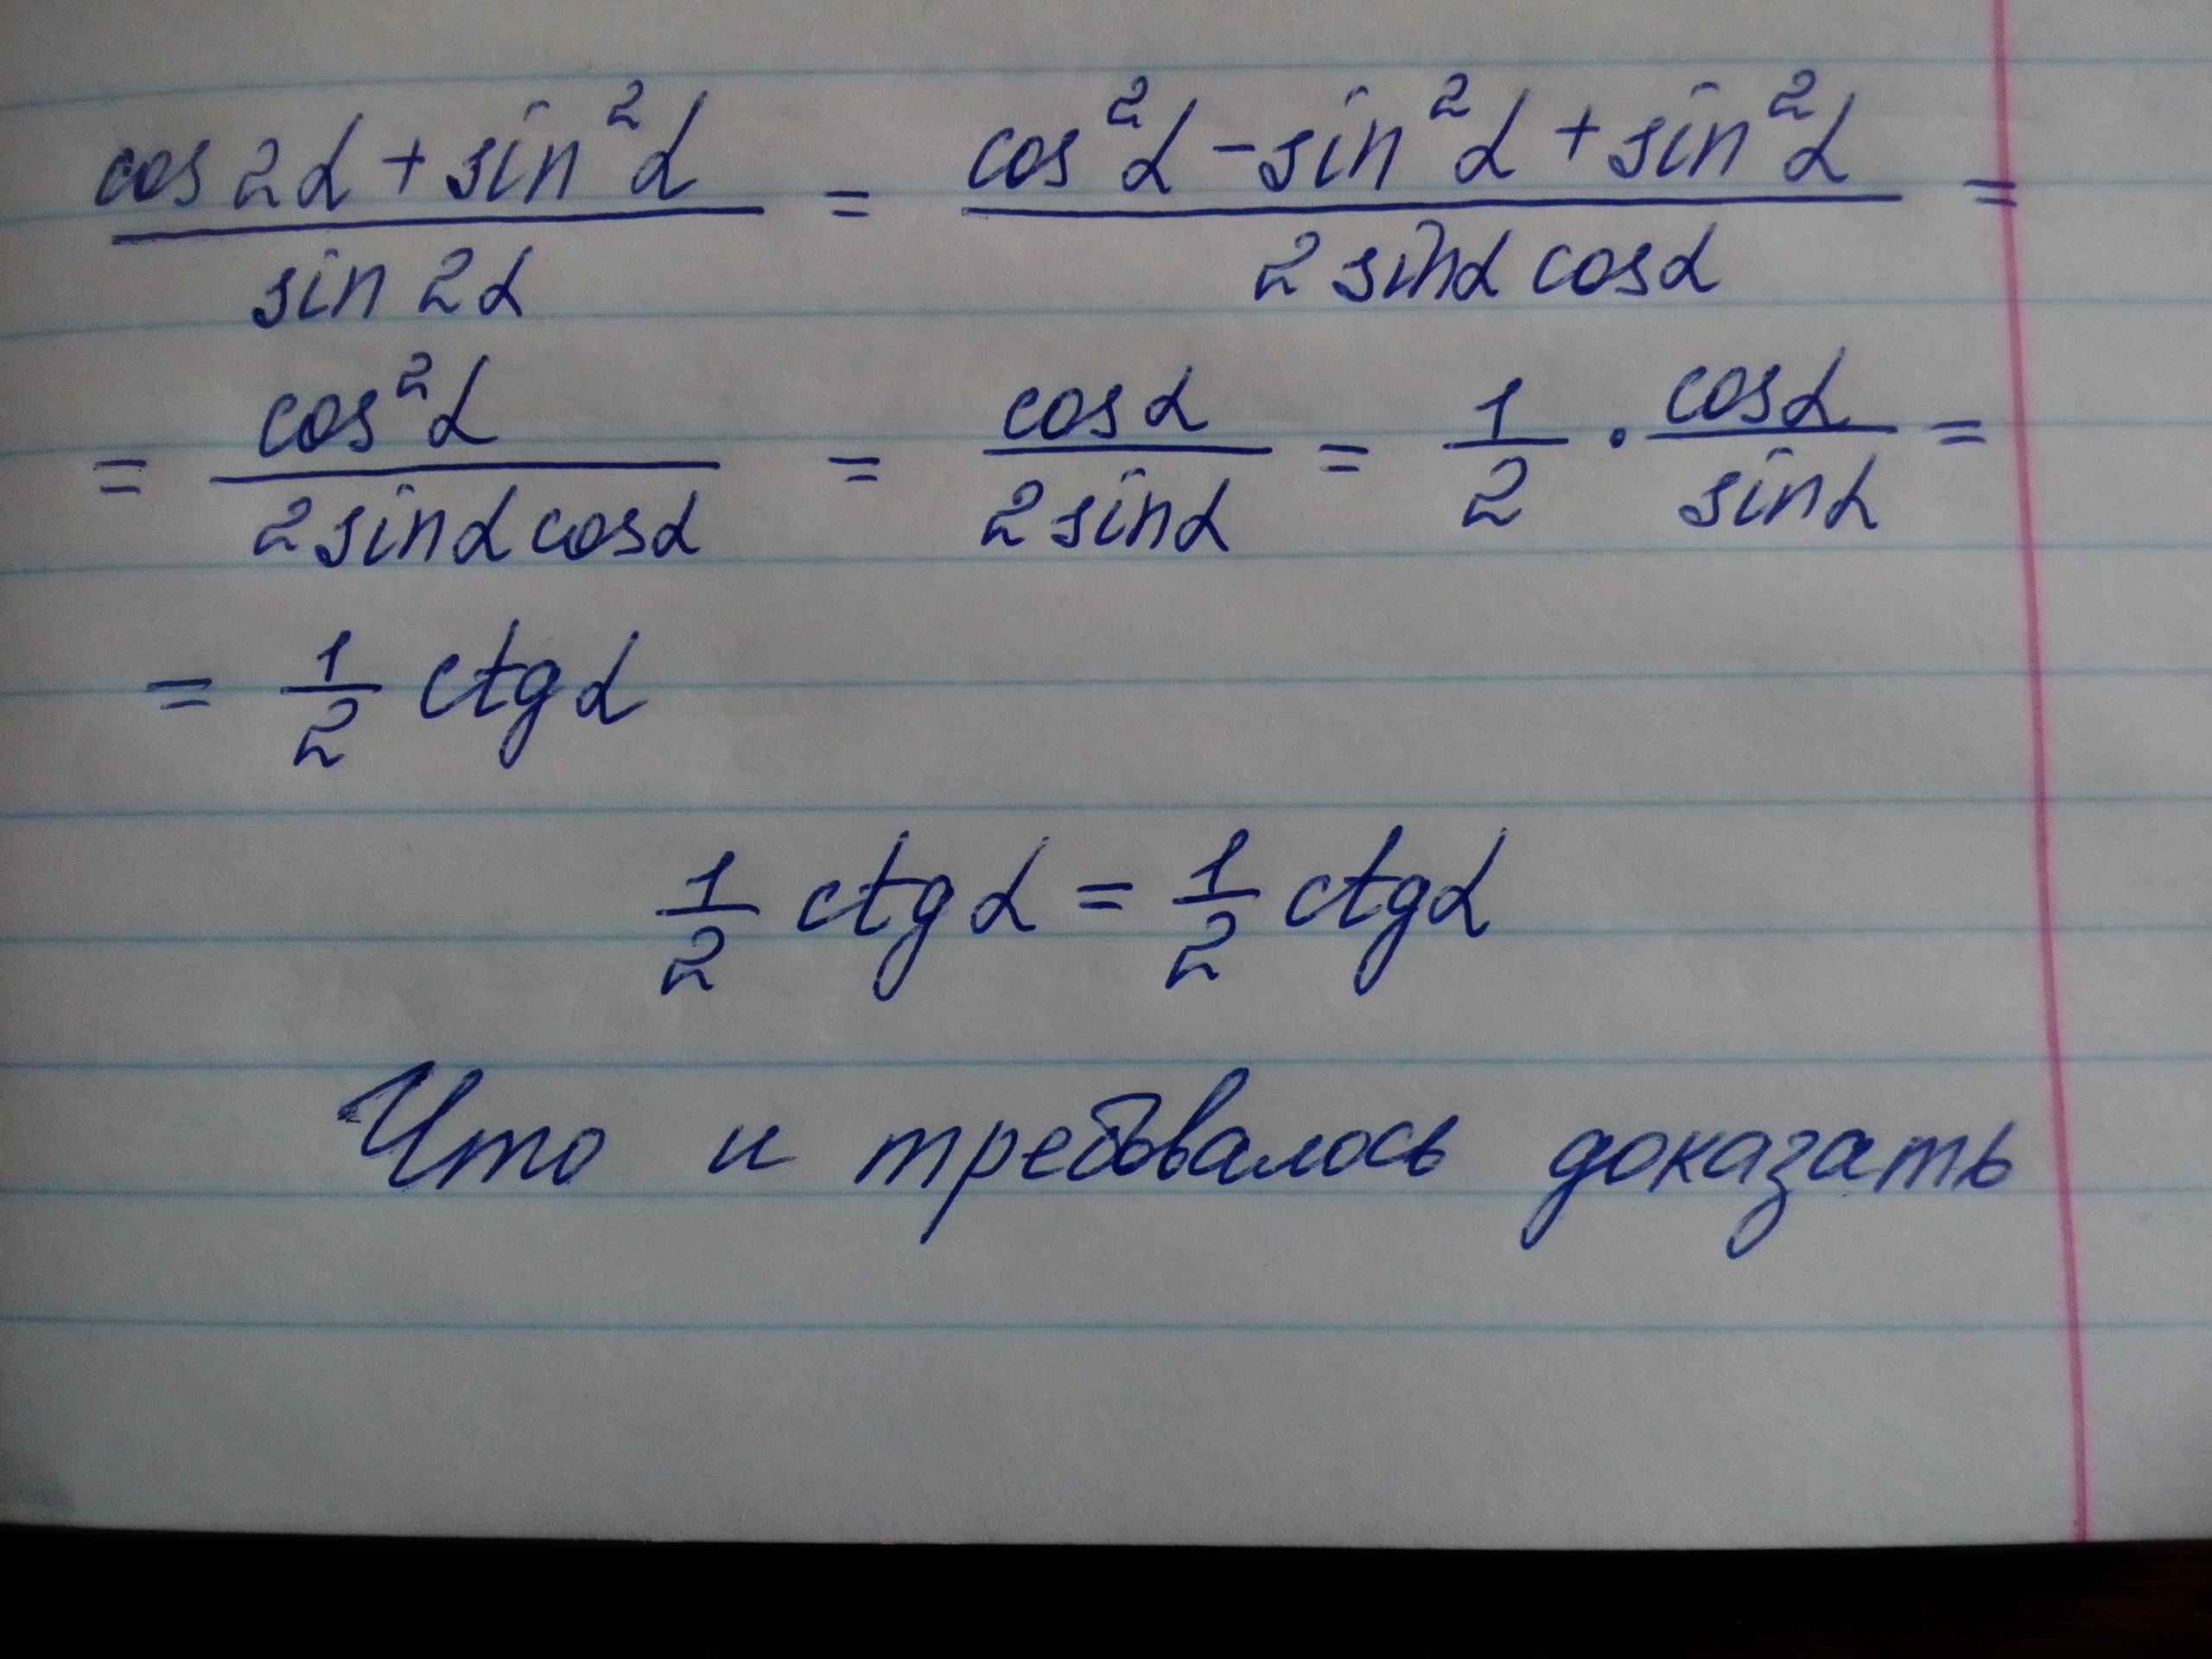 (cos 2α + sin²α)/(sin 2α) = (cos²α - sin²α + sin²α)/(2 sinα cosα) =
= (cos²α)/(2 sinα cosα) = (cosα)/(2 sinα) = 1/2 · (cosα)/(sinα) =
= 1/2 ctgα
1/2 ctgα = 1/2 ctgα
Что и требовалось доказать